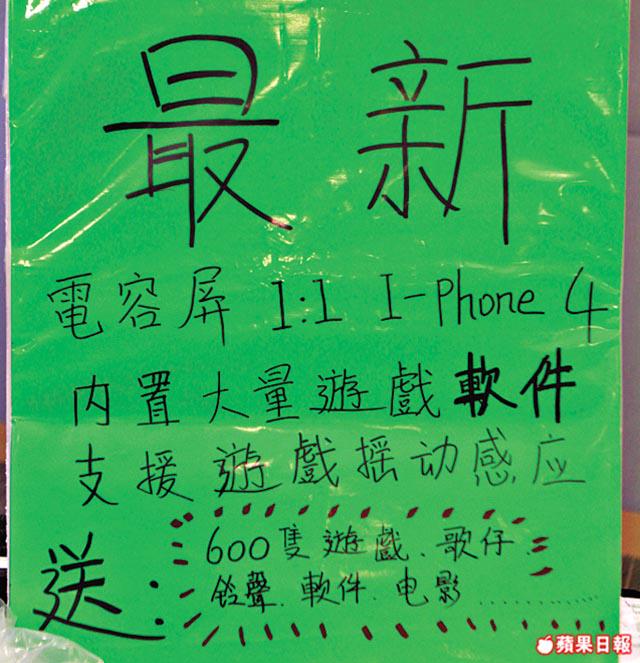 最新
電容屏 1:1 I-Phone 4
内置大量遊戲軟件
支援遊戲摇动感应
送: 600隻遊戲、歌仔、
铃聲、軟件、电影............
蘋果日報